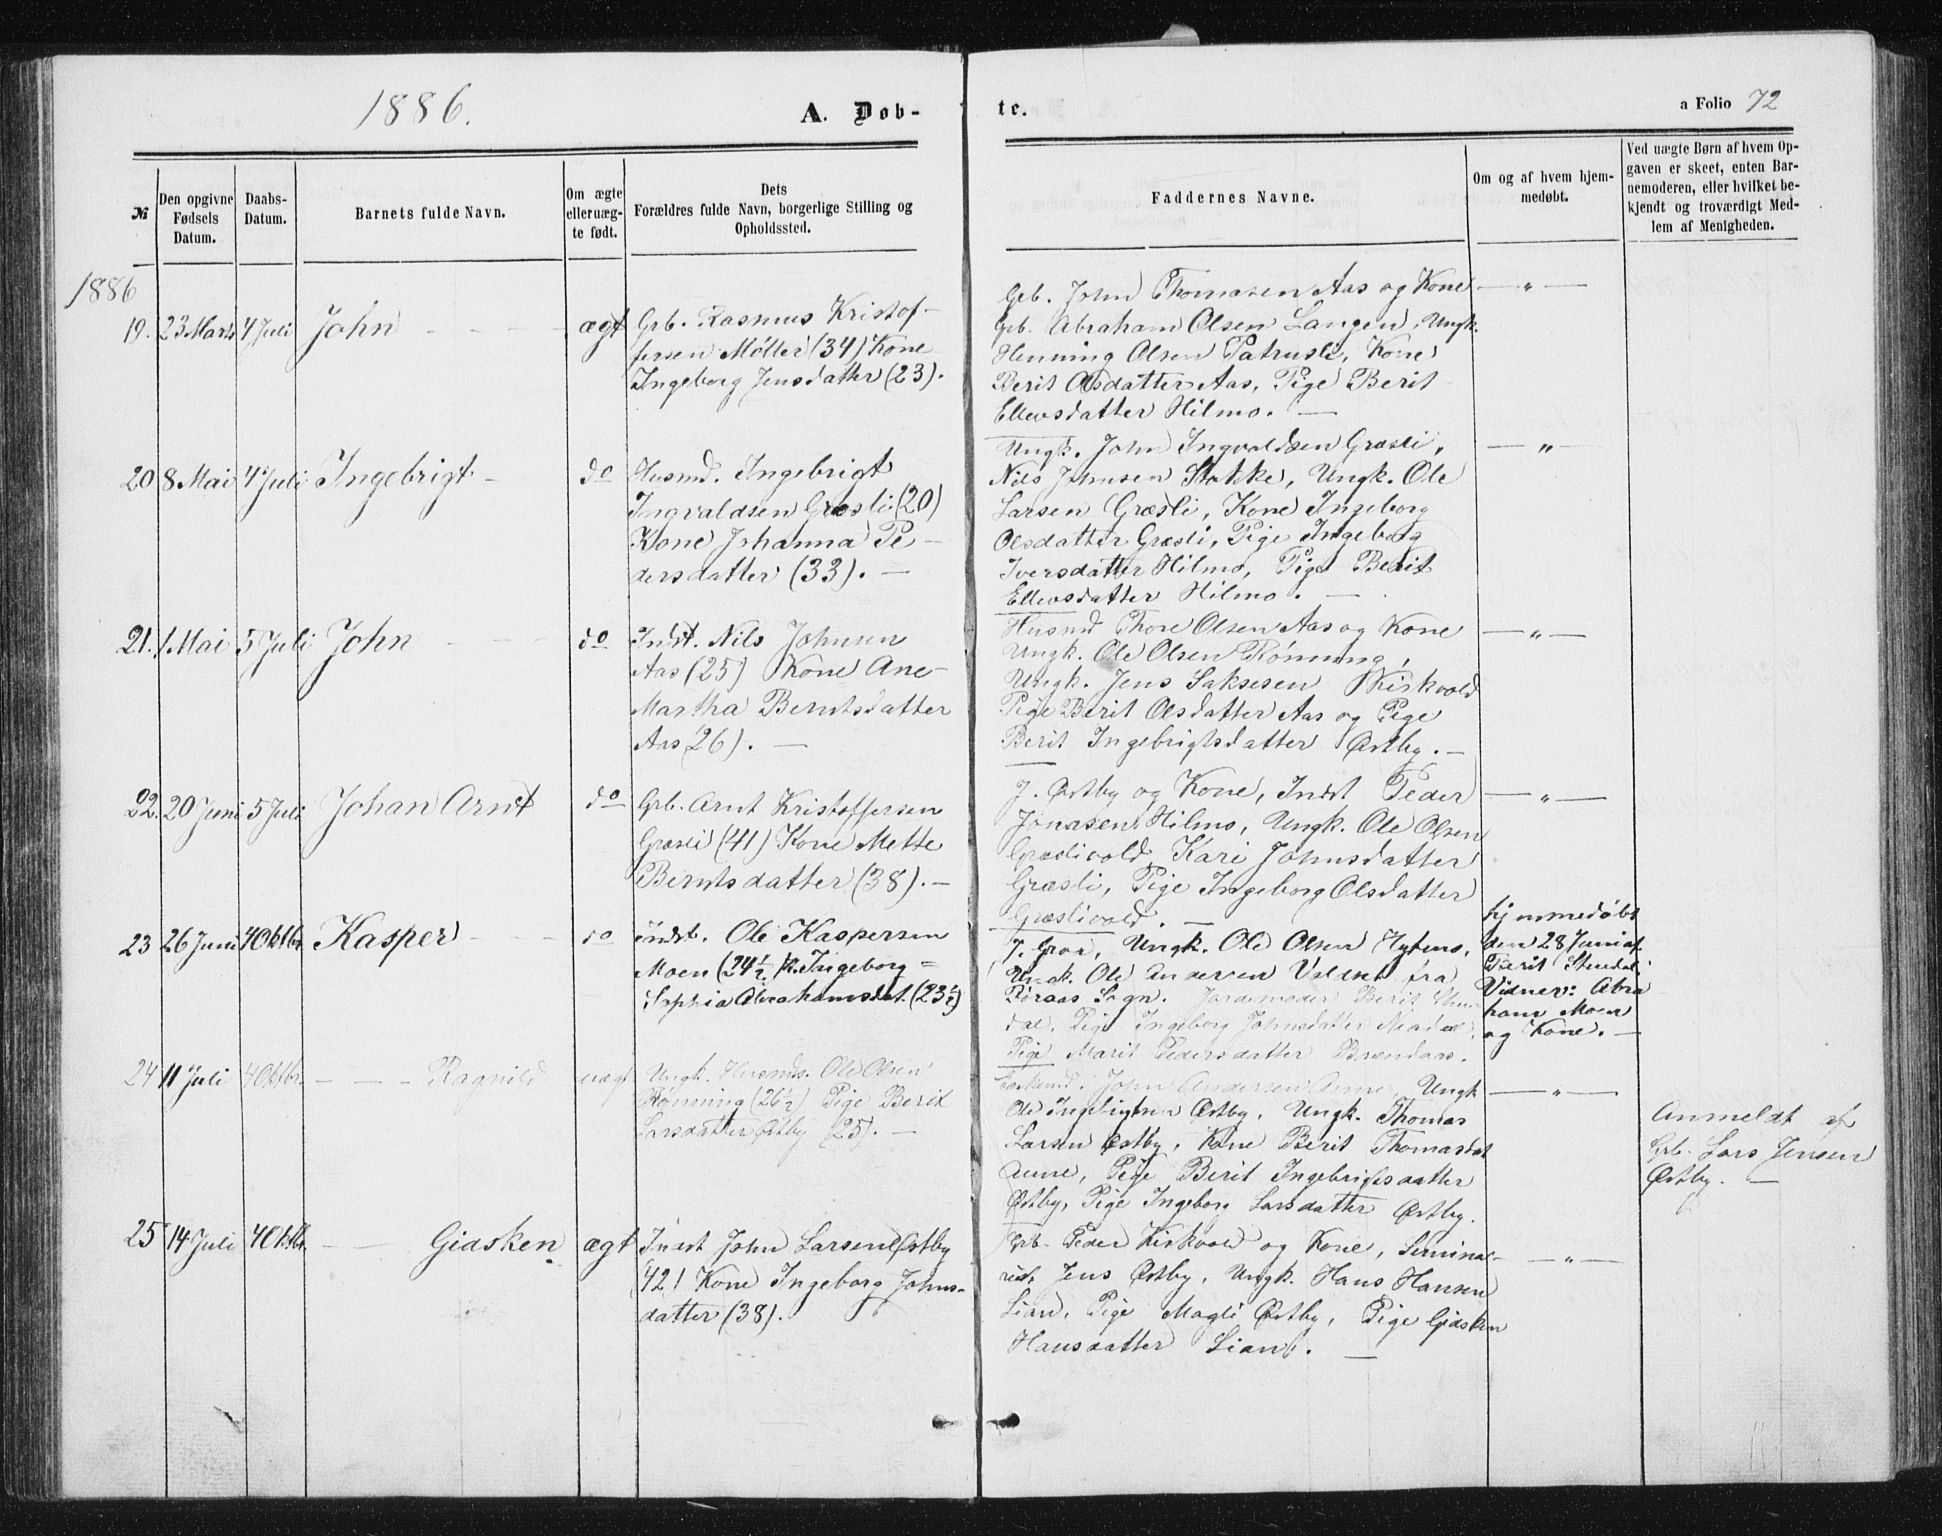 1886.
A. Døb-
te.
a Folio 72
№
Den opgivne
Fødsels
Datum.
Daabs-
Datum.
Barnets fulde Navn.
Om ægte
eller uæg-
te født.
Dets
Forældres fulde Navn, borgerlige Stilling og
Opholdssted.
Faddernes Navne.
Om og af hvem hjem-
medøbt.
Ved uægte Børn af hvem Op-
gaven er skeet, enten Bar-
nemoderen, eller hvilket be-
kjendt og troværdigt Med-
lem af Menigheden.
1886
19. 23 Marts 4 Juli John - - - - ægt
Grb. Rasmus Kristof-
fersen Møller (34) Kone
Ingeborg Jensdatter (23).
Grb. John Thomasen Aas og Kone
Grb. Abraham Olsen Langen, Ungk.
Henning Olsen Patrusli, Kone
Berit Olsdatter Aas, Pige Berit
Ellevsdatter Hilmo. —
— „ —
20 8 Mai 4 Juli Ingebrigt - do
Husmd. Ingebrigt
Ingvaldsen Græsli (20)
Kone Johanna Pe-
dersdatter (33). —
Ungk. John Ingvaldsen Græsli,
Nils Johnsen Stokke, Ungk. Ole
Larsen Græsli, Kone Ingeborg
Olsdatter Græsli, Pige Ingeborg
Iversdatter Hilmo, Pige Berit
Ellevsdatter Hilmo. —
— „ —
21. 1 Mai 5 Juli John - - do
Indst. Nils Johnsen
Aas (25) Kone Ane
Martha Berntsdatter
Aas (26). —
Husmd Thore Olsen Aas og Kone
Ungk. Ole Olsen Rønning,
Ungk. Jens Saksesen Kirkvold
Pige Berit Olsdatter Aas og Pige
Berit Ingebrigtsdatter Østby. —
— „ —
22. 20 Juni 5 Juli Johan Arnt do
Grb. Arnt Kristoffersen
Græsli (41) Kone Mette
Berntsdatter (38). —
J. Østby og Kone, Indst Peder
Jonasen Hilmo, Ungk. Ole Olsen
Græslivold, Kari Johnsdatter
Græsli, Pige Ingeborg Olsdatter
Græslivold. —
— „ —
23 26 Juni 4 Oktbr. Kasper - - do
Indst. Ole Kaspersen
Moen (24½) K. Ingeborg =
Sophia Abrahamsdat. (23½)
J. Graa, Ungk. Ole Olsen Hytmo,
Ungk. Ole Andersen fra
Røraas Sogn. Jordemoder Berit Stue-
dal, Pige Ingeborg Johnsdatter
Pige Marit Pedersdatter
hjemmedøbt
den 28 Juni af
Berit Stuedal
Vidner: Abra
ham Moen
og Kone. —
24 11 Juli 4 Oktbr. - - - Ragnild uægt
Ungk. Husmds. Ole Olsen
Rønning (26½) Pige Berit
Larsdatter Østby (25). —
John Andersen Aune, Ungk
Ole Ingebrigtsen Østby, Ungk. Thomas
Larsen Østby, Kone Berit Thomasdat
Aune, Pige Berit Ingebrigtsdatter
Østby, Pige Ingeborg Larsdatter Østby.
— „ —
Anmeldt af
Grb. Lars Jensen
Østby. —
25 14 Juli 4 Oktbr. - - Gidsken ægt
Indst John Larsen Østby
(42) Kone Ingeborg Johns-
datter (38).
Grb. Peder Kirkvold og Kone, Seminar-
ist Jens Østby, Ungk. Hans Hansen
Lian, Pige Magli Østby, Pige Gidsken
Hansdatter Lian. —
— „ —